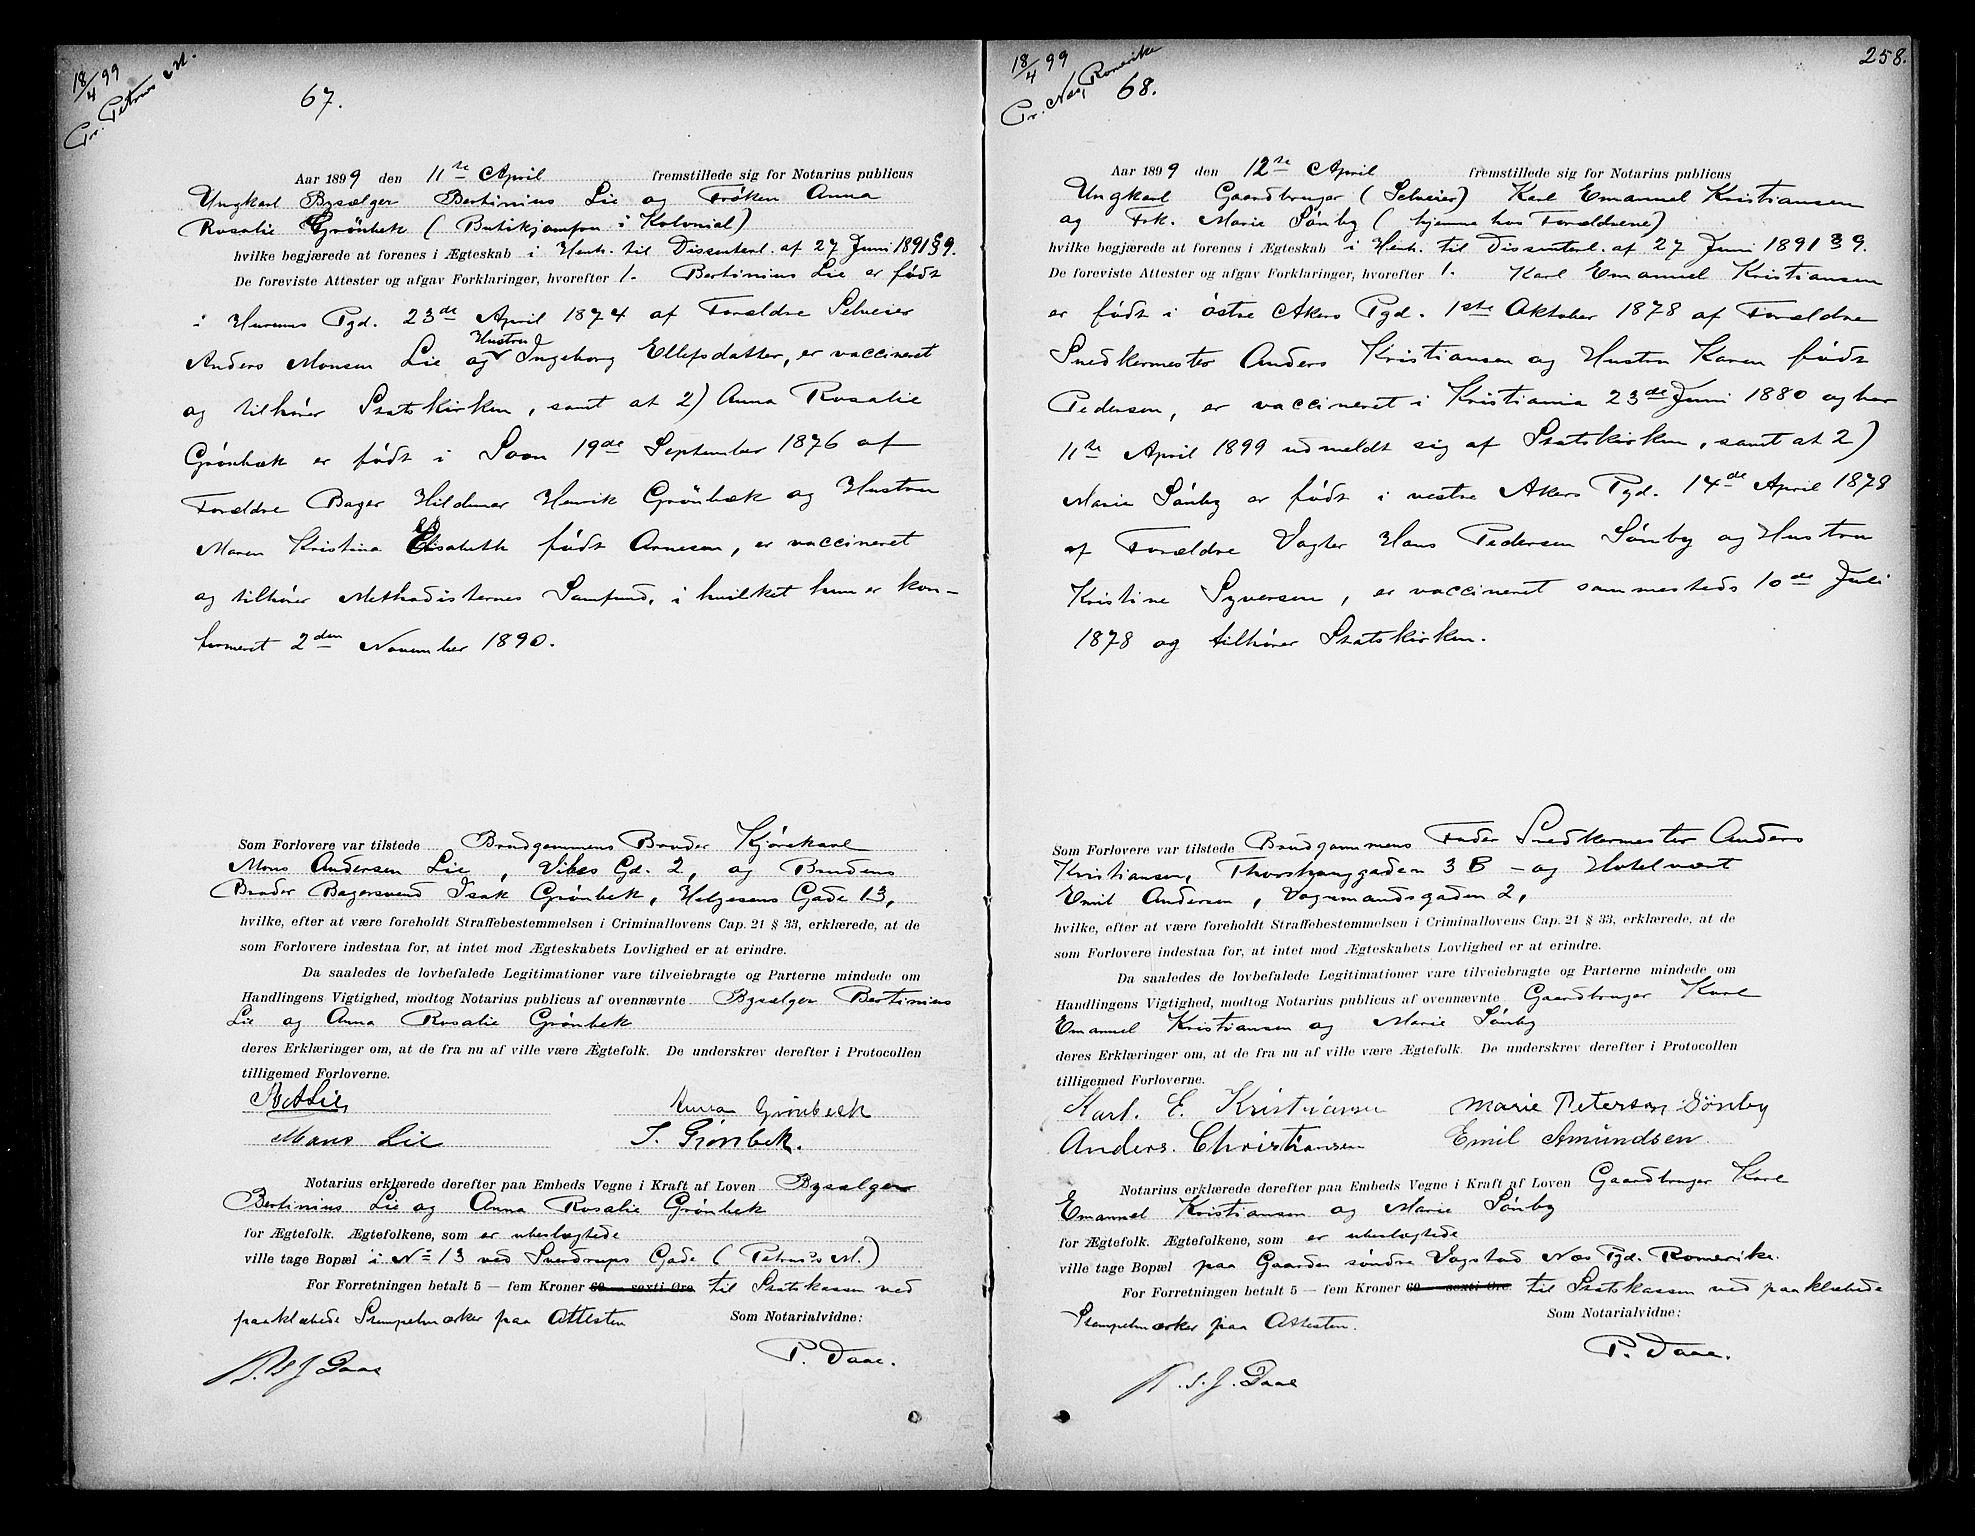 18/4 99
Pr. Petrus M.
67.
Aar 1899 den 11te April fremstillede sig for Notarius publicus
Ungkarl Bysælger Bertinius Lie og Frøken Anna
Rosalie Grønbek (Butikjomfru i Kolonial)
hvilke begjærede at forenes i Ægteskab i Henh. til Dissenterl. af 27 Juni 1891 § 9.
De foreviste Attester og afgav Forklaringer, hvorefter 1. Bertinius Lie er født
i Hurums Pgd. 23de April 1874 af Forældre Selveier
Anders Monsen Lie og Hustru Ingeborg Ellefsdatter, er vaccineret
og tilhører Statskirken, samt at 2) Anna Rosalie
Grønbæk er født i Soon 19de September 1876 af
Forældre Bager Hildemar Henrik Grønbæk og Hustru
Maren Kristina Elisabeth født Arnesen, er vaccineret
og tilhører Methodisternes Samfund, i hvilket hun er kon-
firmeret 2den November 1890.
Som Forlovere var tilstede Brudgommens Broder Kjørekarl
Mons Andersen Lie, Vibes Gd. 2, og Brudens
Broder Bagersvend Isak Grønbek, Helgesens Gade 13,
hvilke, efter at være foreholdt Straffebestemmelsen i Criminallovens Cap. 21 § 33, erklærede, at de
som Forlovere indestaa for, at intet mod Ægteskabets Lovlighed er at erindre.
Da saaledes de lovbefalede Legitimationer vare tilveiebragte og Parterne mindede om
Handlingens Vigtighed, modtog Notarius publicus af ovennævnte Bysælger Bertinius
Lie og Anna Rosalie Grønbek
deres Erklæringer om, at de fra nu af ville være Ægtefolk. De underskrev derefter i Protocollen
tilligemed Forloverne.
Anna Grönbeck
Mons Lie I. Grønbek.
Notarius erklærede derefter paa Embeds Vegne i Kraft af Loven Bysælger
Bertinius Lie og Anna Rosalie Grønbek
for Ægtefolk. Ægtefolkene, som er ubeslægtede
ville tage Bopæl i No 13 ved Sverdrups Gade (Petrus's M.)
For Forretningen betalt 5 — fem Kroner 60 — sexti Øre til Statskassen ved
paaklæbede Stempelmærker paa Attesten Som Notarialvidne:
P. Daae.
Daae
18/4 99
Pr. Næs, Romerike
68.
258.
Aar 1899 den 12te April fremstillede sig for Notarius publicus
Ungkarl Gaardbruger (Selveier) Karl Emanuel Kristiansen
og Frk. Marie Sønby (hjemme hos Forældrene)
hvilke begjærede at forenes i Ægteskab i Henh. til Dissenterl. af 27 Juni 1891 § 9.
De foreviste Attester og afgav Forklaringer, hvorefter 1. Karl Emanuel Kristiansen
er født i østre Akers Pgd. 1ste Oktober 1878 af Forældre
Snedkermester Anders Kristiansen og Hustru Karen født
Pedersen, er vaccineret i Kristiania 23de Juni 1880 og har
11te April 1899 udmeldt sig af Statskirken, samt at 2)
Marie Sønby er født i vestre Akers Pgd. 14de April 1878
af Forældre Vogter Hans Pedersen Sønby og Hustru
Kristine Syversen, er vaccineret sammesteds 10de Juli
1878 og tilhører Statskirken.
Som Forlovere var tilstede Brudgommens Fader Snedkermester Anders
Kristiansen, Thorshauggaden 3 B — og Hotelvært
Emil Andersen, Vognmandsgaden 2,
hvilke, efter at være foreholdt Straffebestemmelsen i Criminallovens Cap. 21 § 33, erklærede, at de
som Forlovere indestaa for, at intet mod Ægteskabets Lovlighed er at erindre.
Da saaledes de lovbefalede Legitimationer vare tilveiebragte og Parterne mindede om
Handlingens Vigtighed, modtog Notarius publicus af ovennævnte Gaardbruger Karl
Emanuel Kristiansen og Marie Sønby
deres Erklæringer om, at de fra nu af ville være Ægtefolk. De underskrev derefter i Protocollen
tilligemed Forloverne.
Karl. E. Kristiansen Marie Peterson Sönby
Anders. Christiansen Emil Amundsen
Notarius erklærede derefter paa Embeds Vegne i Kraft af Loven Gaardbruger Karl
Emanuel Kristiansen og Marie Sønby
for Ægtefolk. Ægtefolkene, som er ubeslægtede
ville tage Bopæl paa Gaarden søndre Vogstad Næs Pgd. Romerike.
For Forretningen betalt 5 — fem Kroner 60 — sexti Øre til Statskassen ved paaklæbede
Stempelmærker paa Attesten. Som Notarialvidne:
P. Daae.
Daae